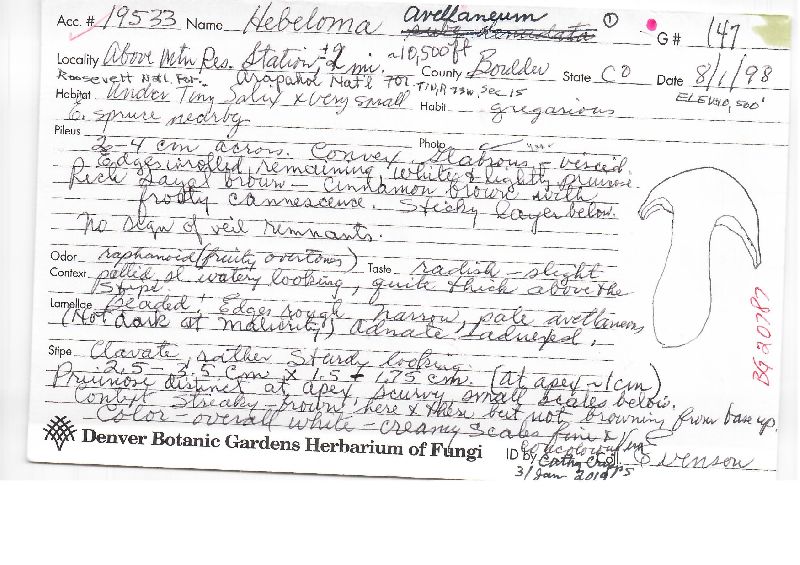 Acc. # 19533 Name Hebeloma Avellaneum ① G # 147
Locality Above Mtn Res. Station ± 2 mi. ~10,500 ft County Boulder State CO Date 8/1/98
Roosevelt Natl. For. Arapaho Nat'l For T1N, R73W, Sec 15 ELEV 10,500'
Habitat Under Tiny Salix & very small Habit gregarious
E. spruce nearby
Pileus Photo ✓
2-4 cm across. Convex. Glabrous - viscid.
Edges inrolled remaining white & lightly pruinose
Rich hazel brown - cinnamon brown with
frosty cannescence. Sticky layer below.
No sign of veil remnants.
Odor raphanoid (fruity overtones) Taste radish - slight
Context pallid, sl watery looking, quite thick above the
stipe.
Lamellae Beaded, Edges rough narrow, pale avellaneus
(Not dark at maturity) Adnate, sadnexed,
Stipe Clavate, rather sturdy looking
2.5 - 3.5 cm. x 1.5 - 1.75 cm. (at apex ~1cm)
Pruinose distinct at apex, scurvy, small scales below.
Context streaky-brown here & there but not browning from base up.
Color - overall white - creamy scales fine &
concolorous
Denver Botanic Gardens Herbarium of Fungi ID by Cathy Cripps Coll. Evenson
3/Jan 2019
BG 20787